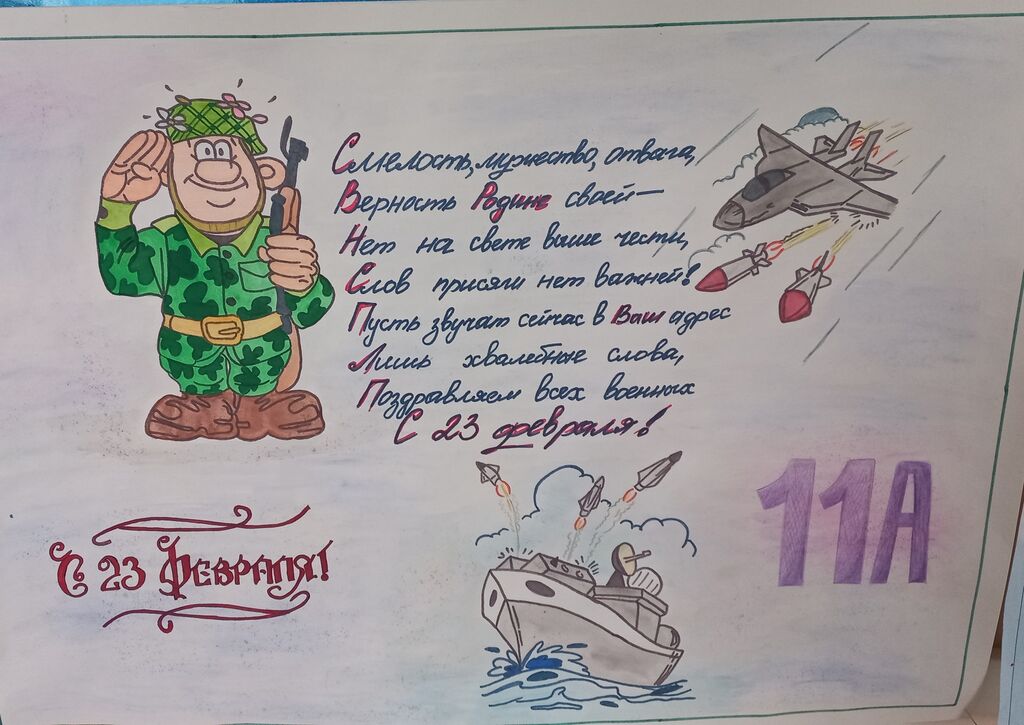 Смелость, мужество, отвага,
Верность Родине своей—
Нет на свете выше чести,
Слов присяги нет важней!
Пусть звучат сейчас в Ваш адрес
Лишь хвалебные слова,
Поздравляем всех военных
С 23 февраля!
С 23 Февраля!
11А